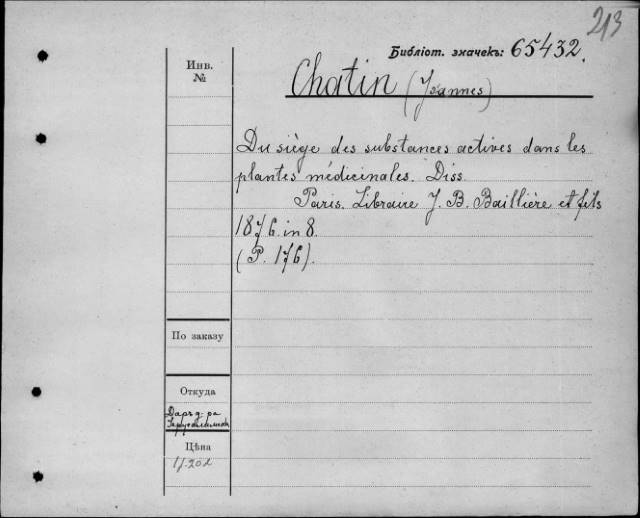 213
Библіот. значекъ: 65432.
Инв.
№
Chatin (Joannes)
Du siège des substances actives dans les
plantes médicinales. Diss.
Paris. Libraire J. B. Baillière et fils
1876. in 8.
(P. 176).
По заказу
Откуда
Даръ д-ра
Цѣна